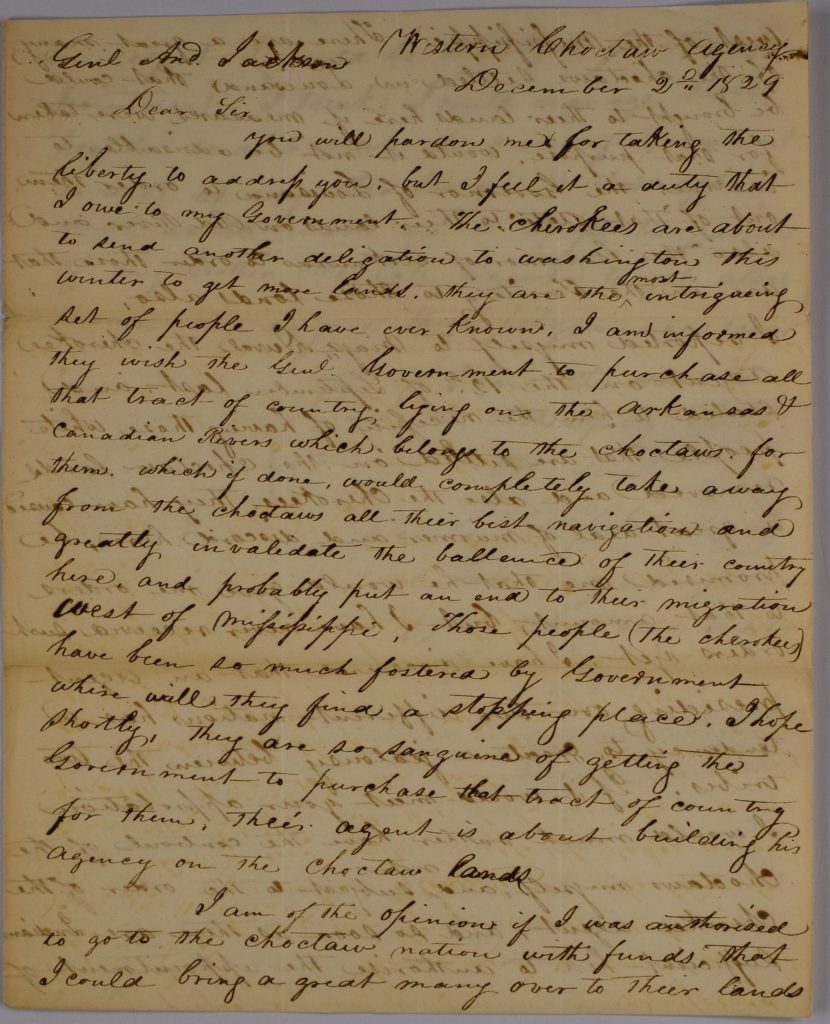 Western Choctaw Agency
Genl And. Jackson
December 2d 1829
Dear Sir
you will pardon me for taking the
liberty, to address you, but I feel it a duty that
I owe to my Government. The cherokees are about
to send another deligation to washington this
winter to get more lands. they are the most intrigueing
set of people I have ever known. I am informed
they wish the Genl. Government to purchase all
that tract of country lying on the Arkansas &
Canadian Rivers which belongs to the choctaws. for
them. which if done, would completely take away
from the choctaws all their best navigation and
greatly invalidate the ballence of their country
here, and probably put an end to their migration
West of Missisippi. Those people (the cherokees)
have been so much fostered by Government
where will they find a stopping place. I hope
shortly, they are so sanguine of getting the
Government to purchase that tract of country
for them, their agent is about building his
agency on the choctaw lands
I am of the opinion if I was authorised
to go to the choctaw nation with funds, that
I could bring a great many over to their lands